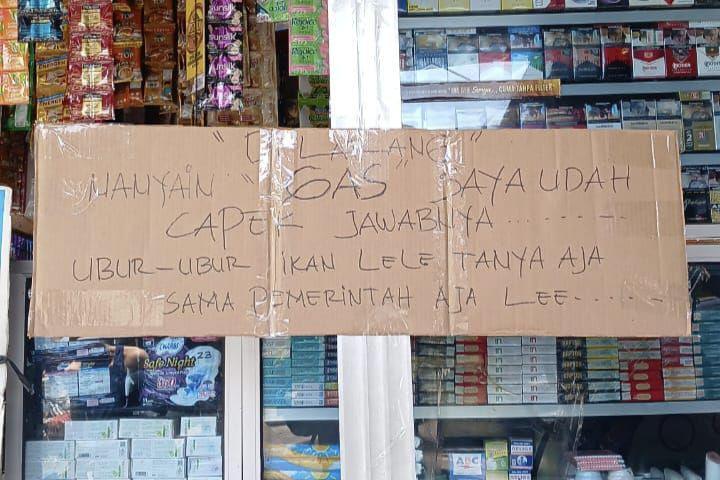 sunsilk
"DILARANG"
NANYAIN "GAS" SAYA UDAH
CAPEK JAWABNYA ..........
UBUR-UBUR IKAN LELE TANYA AJA
SAMA PEMERINTAH AJA LEE......
Safe Night
ABC